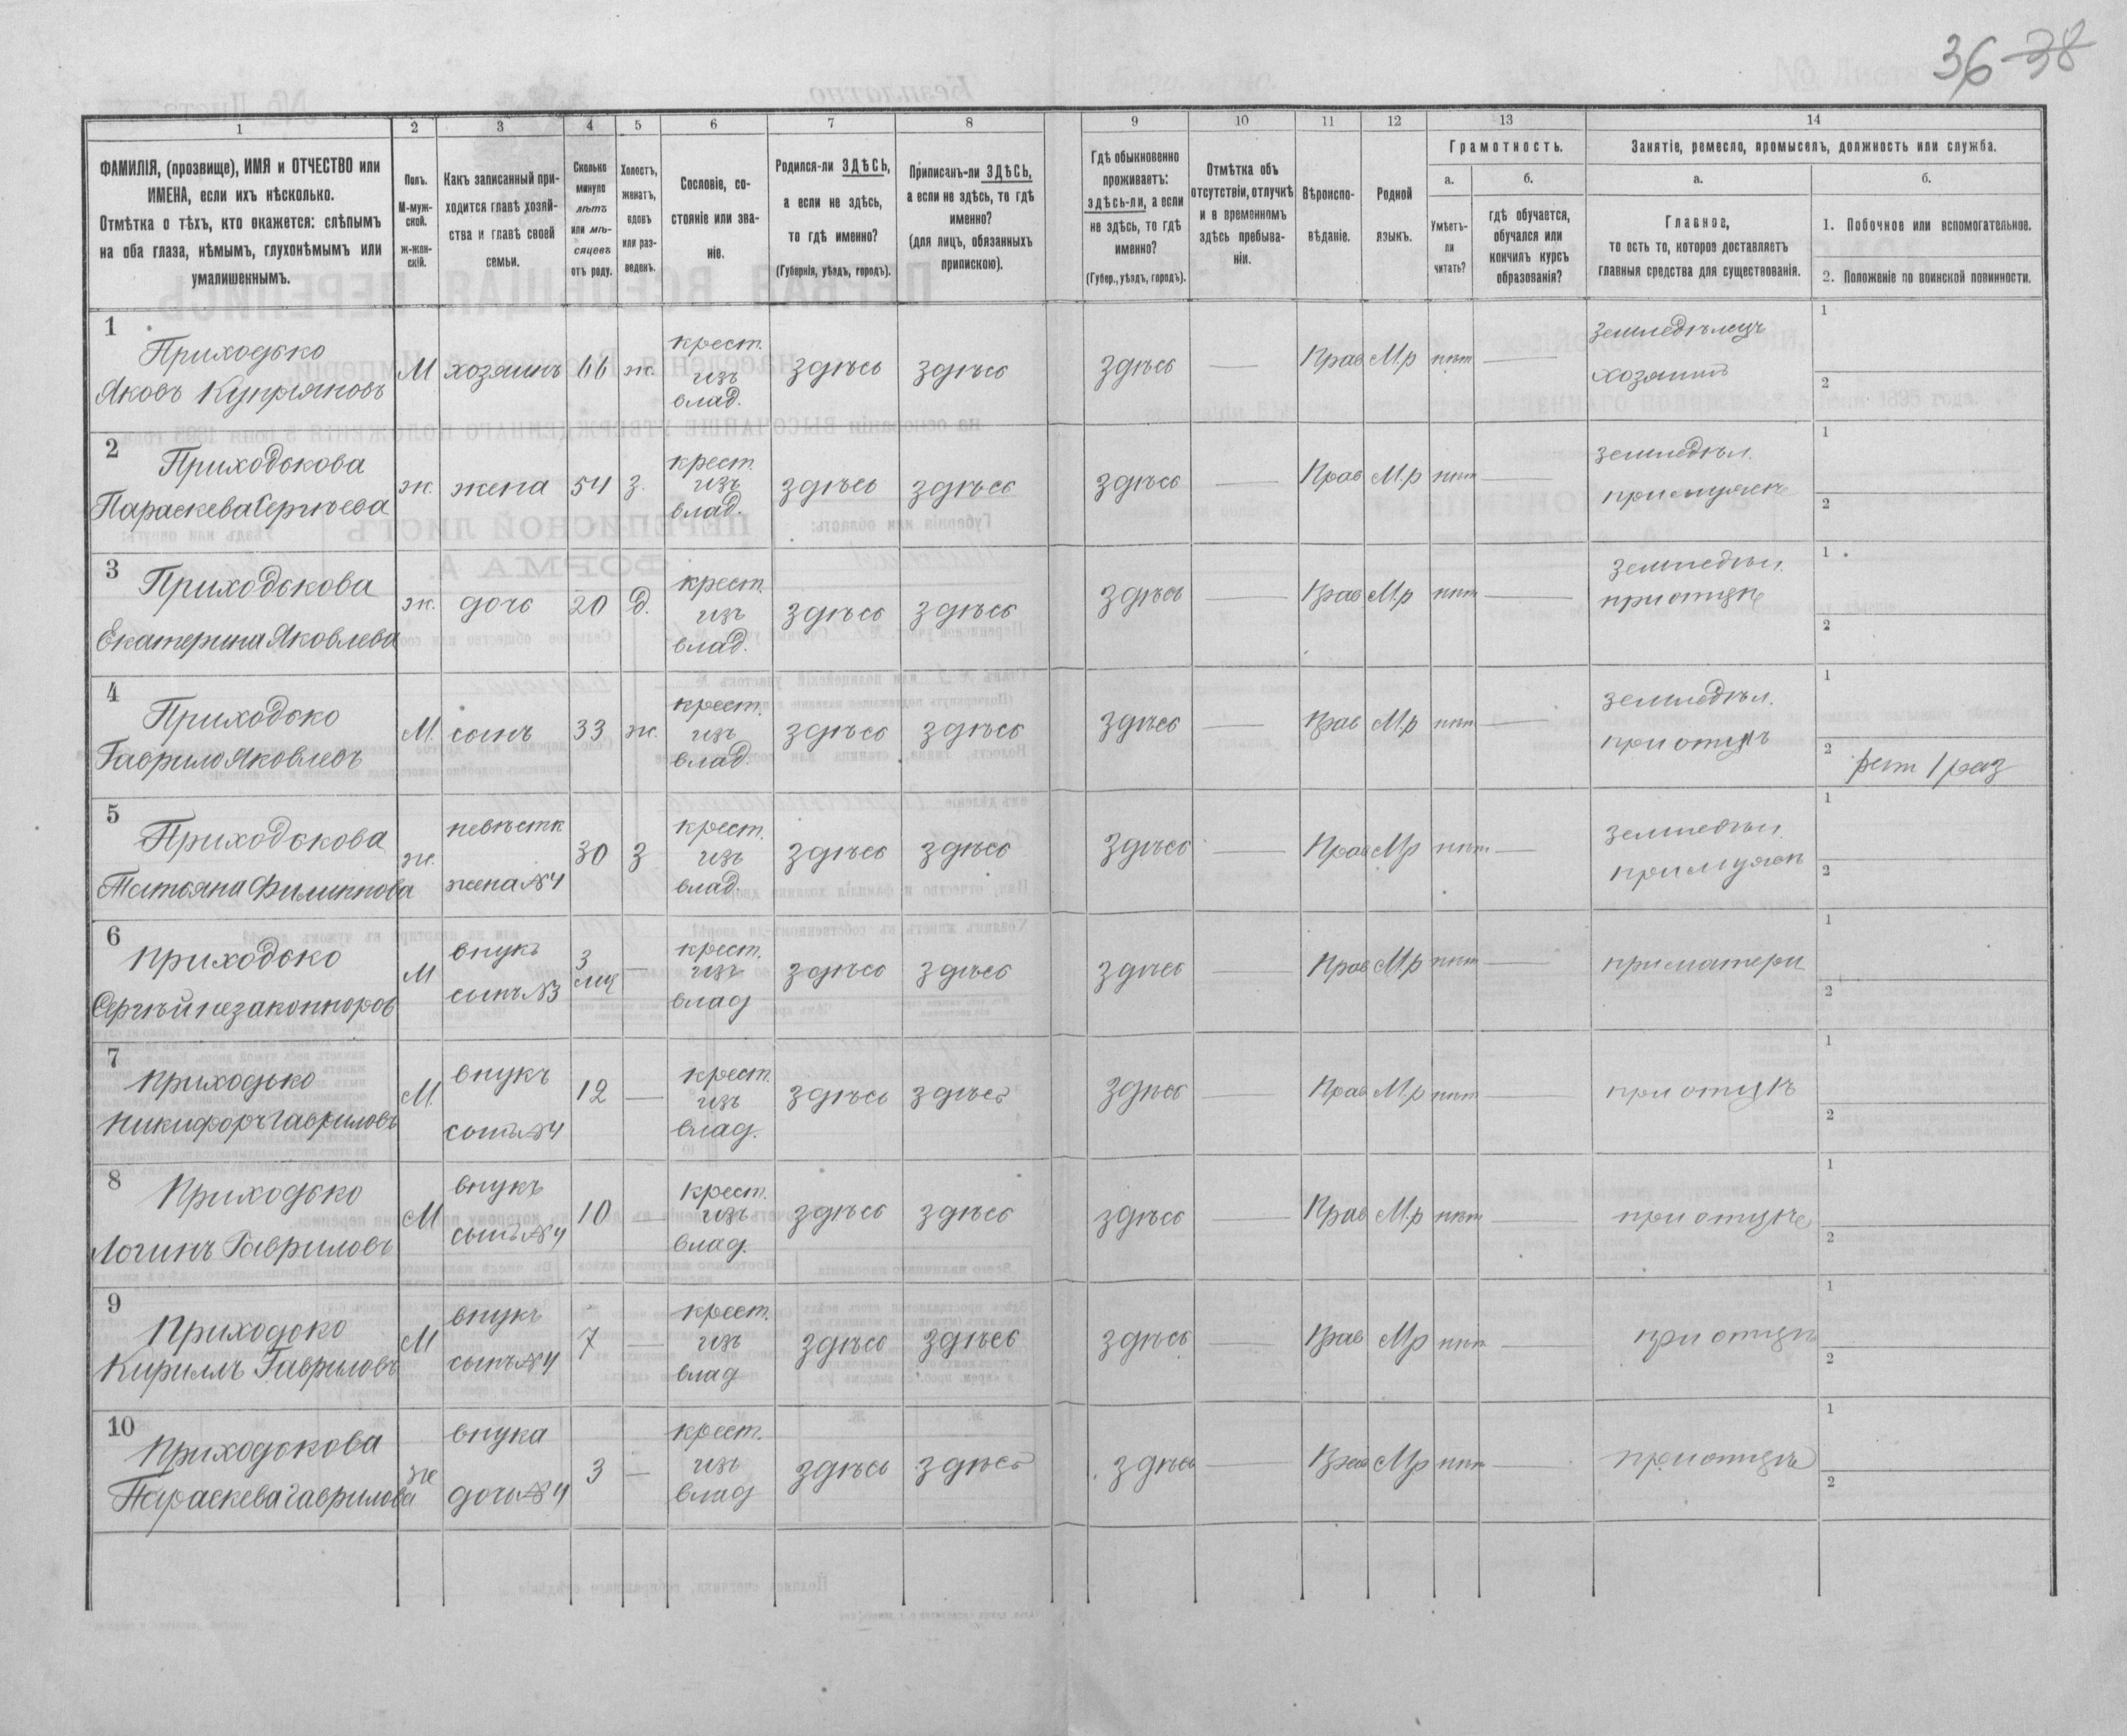 36-38
1 2 3 4 5 6 7 8 9 10 11 12 13 14
ФАМИЛІЯ, (прозвище), ИМЯ и ОТЧЕСТВО или
ИМЕНА, если ихъ нѣсколько.
Отмѣтка о тѣхъ, кто окажется: слѣпымъ
на оба глаза, нѣмымъ, глухонѣмымъ или
умалишеннымъ.
Полъ.
М-муж-
ской.
ж-жен-
скій.
Какъ записанный при-
ходится главѣ хозяй-
ства и главѣ своей
семьи.
Сколько
минуло
лѣтъ
или мѣ-
сяцевъ
отъ роду.
Холостъ,
женатъ,
вдовъ
или раз-
веденъ.
Сословіе, со-
стояніе или зва-
ніе.
Родился-ли ЗДѢСЬ,
а если не здѣсь,
то гдѣ именно?
(Губернія, уѣздъ, городъ).
Приписанъ-ли ЗДѢСЬ,
а если не здѣсь, то гдѣ
именно?
(для лицъ, обязанныхъ
припискою).
Гдѣ обыкновенно
проживаетъ:
здѣсь-ли, а если
не здѣсь, то гдѣ
именно?
(Губер., уѣздъ, городъ).
Отмѣтка объ
отсутствіи, отлучкѣ
и в временномъ
здѣсь пребыва-
ніи.
Вѣроиспо-
вѣданіе.
Родной
языкъ.
Грамотность.
а.
Умѣетъ-
ли
читать?
б.
гдѣ обучается,
обучался или
кончилъ курсъ
образованія?
Занятіе, ремесло, промыселъ, должность или служба.
а.
Главное,
то есть то, которое доставляетъ
главныя средства для существованія.
б.
1. Побочное или вспомогательное.
2. Положеніе по воинской повинности.
1
Приходько
Яковъ Купріяновъ
М хозяинъ 66 ж.
крест.
изъ
влад.
здѣсь здѣсь здѣсь — Прав М.р нѣт —
земледѣлецъ
хозяинъ
1
2
2
Приходькова
Параскева Сергѣева
ж. жена 54 з.
крест.
изъ
влад.
здѣсь здѣсь здѣсь — Прав М.р нѣт —
земледѣл.
при мужѣ
1
2
3
Приходькова
Екатерина Яковлева
ж. дочь 20 д.
крест.
изъ
влад.
здѣсь здѣсь здѣсь — Прав М.р нѣт —
земледѣл.
при отцѣ
1
2
4
Приходько
Гаврило Яковлевъ
М. сынъ 33 ж.
крест.
изъ
влад.
здѣсь здѣсь здѣсь — Прав М.р нѣт —
земледѣл.
при отцѣ
1
2 рат 1 раз
5
Приходькова
Татьяна Филиппова
ж.
невѣстк
жена №4
30 з
крест.
изъ
влад.
здѣсь здѣсь здѣсь — Прав М.р нѣт —
земледѣл.
при мужѣ
1
2
6
Приходько
Сергѣй незаконноров
М
внукъ
сынъ №3
3
мц
—
крест.
изъ
влад
здѣсь здѣсь здѣсь — Прав М.р нѣт —
при матери
1
2
7
Приходько
Никифоръ Гавриловъ
М.
внукъ
сынъ №4
12 —
крест.
изъ
влад.
здѣсь здѣсь здѣсь — Прав М.р нѣт —
при отцѣ
1
2
8
Приходько
Логинъ Гавриловъ
М
внукъ
сынъ №4
10 —
крест.
изъ
влад.
здѣсь здѣсь здѣсь — Прав М.р нѣт —
при отцѣ
1
2
9
Приходько
Кириллъ Гавриловъ
М
внукъ
сынъ №4
7 —
крест.
изъ
влад
здѣсь здѣсь здѣсь — Прав М.р нѣт —
при отцѣ
1
2
10
Приходькова
Параскева Гаврилова
ж
внука
дочь №4
3 —
крест.
изъ
влад
здѣсь здѣсь здѣсь — Прав М.р нѣт —
при отцѣ
1
2